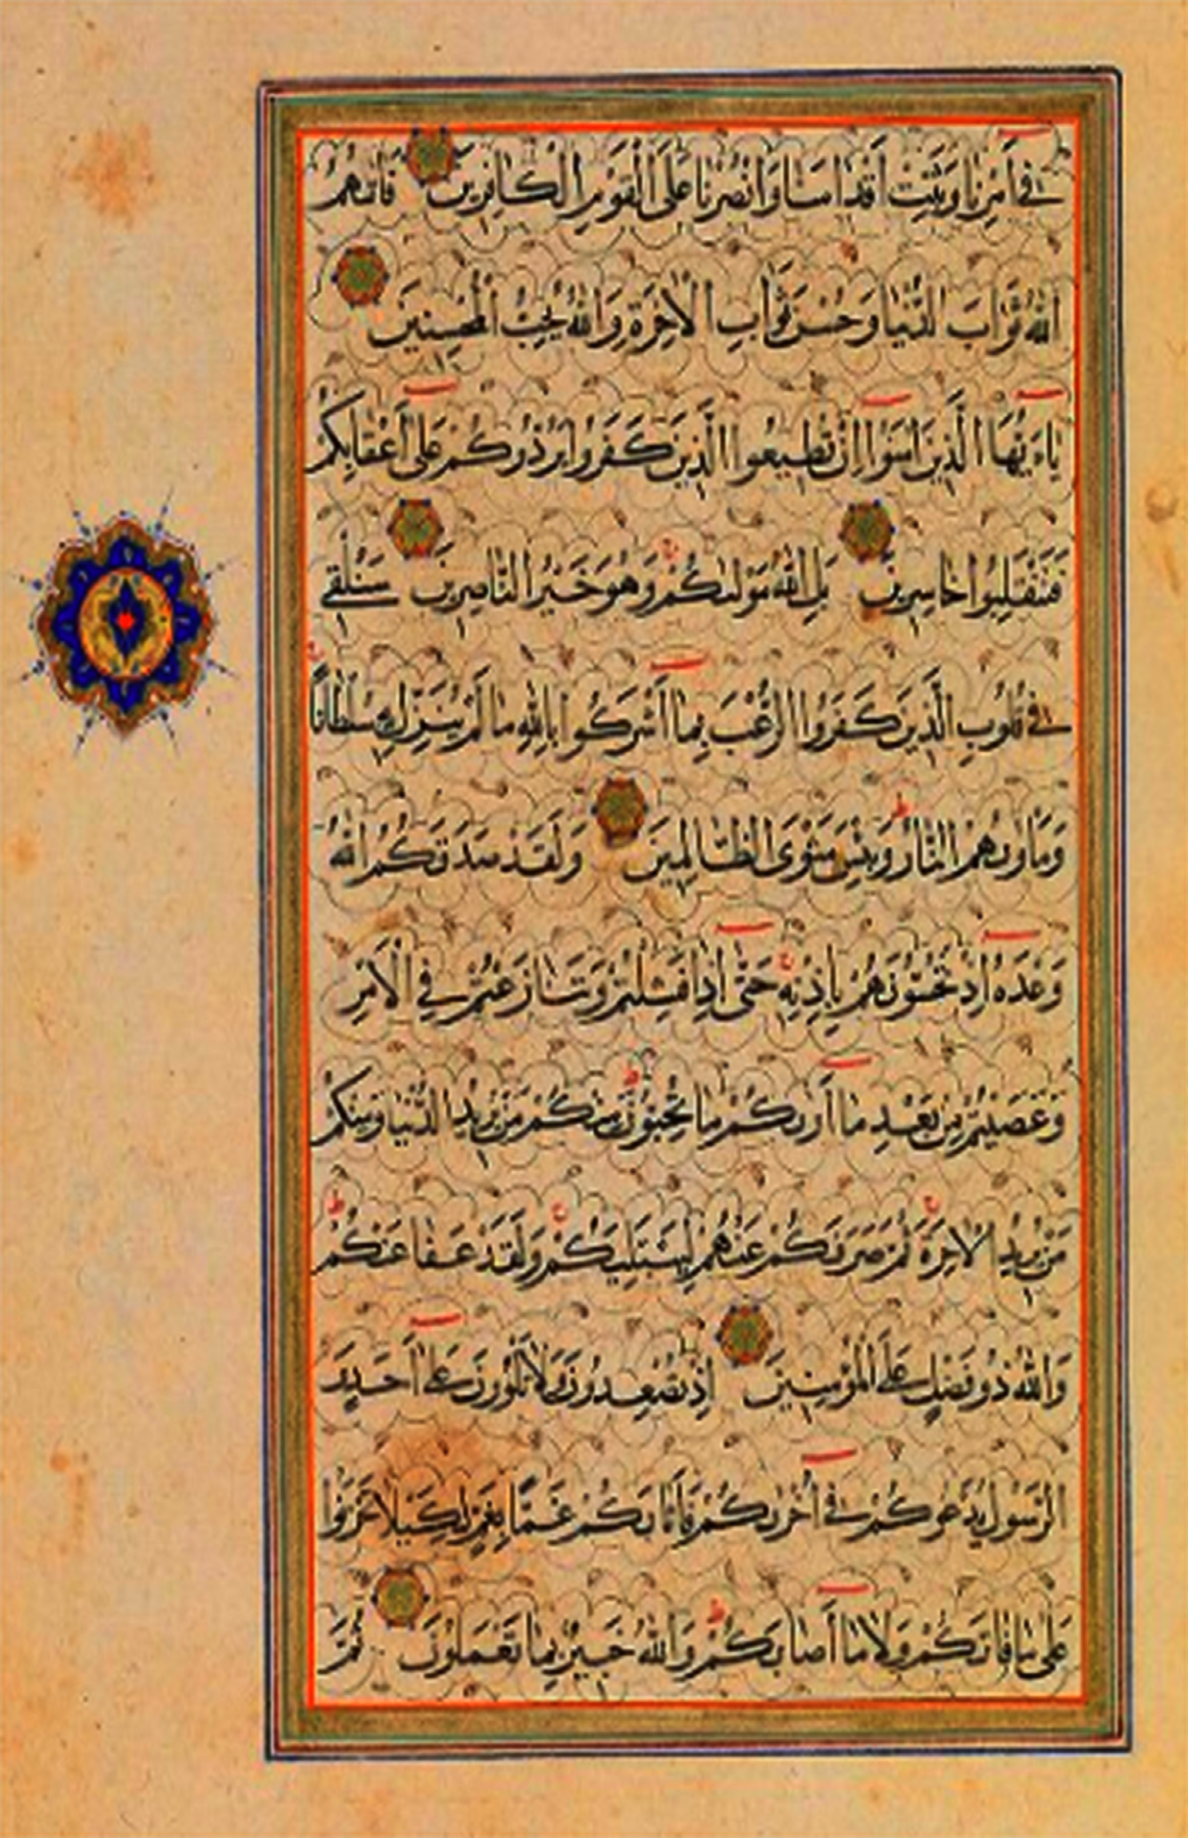 في أَمْرِنَا وَثَبِّتْ أَقْدَامَنَا وَانْصُرْنَا عَلَى الْقَوْمِ الْكَافِرِينَ فَاٰتٰهُمُ
اللهُ ثَوَابَ الدُّنْيَا وَحُسْنَ ثَوَابِ الْاٰخِرَةِ وَاللهُ يُحِبُّ الْمُحْسِنِينَ
يَاءَيُّهَا الَّذِينَ اٰمَنُوا اِنْ تُطِيعُوا الَّذِينَ كَفَرُوا يَرُدُّوكُمْ عَلَى أَعْقَابِكُمْ
فَتَنْقَلِبُوا خَاسِرِينَ بَلِ اللهُ مَوْلٰىكُمْ وَهُوَ خَيْرُ النَّاصِرِينَ سَنُلْقِي
فِي قُلُوبِ الَّذِينَ كَفَرُوا الرُّعْبَ بِمَا أَشْرَكُوا بِاللهِ مَا لَمْ يُنَزِّلْ بِهِ سُلْطَانًا
وَمَأْوٰىهُمُ النَّارُ وَبِئْسَ مَثْوَى الظَّالِمِينَ وَلَقَدْ صَدَقَكُمُ اللهُ
وَعْدَهُ اِذْ تَحُسُّونَهُمْ بِاِذْنِهِ حَتَّى اِذَا فَشِلْتُمْ وَتَنَازَعْتُمْ فِي الْاَمْرِ
وَعَصَيْتُمْ مِنْ بَعْدِ مَا أَرٰىكُمْ مَا تُحِبُّونَ مِنْكُمْ مَنْ يُرِيدُ الدُّنْيَا وَمِنْكُمْ
مَنْ يُرِيدُ الْاٰخِرَةَ ثُمَّ صَرَفَكُمْ عَنْهُمْ لِيَبْتَلِيَكُمْ وَلَقَدْ عَفَا عَنْكُمْ
وَاللهُ ذُو فَضْلٍ عَلَى الْمُؤْمِنِينَ اِذْ تُصْعِدُونَ وَلَا تَلْوُونَ عَلَى أَحَدٍ وَ
الرَّسُولُ يَدْعُوكُمْ فِي أُخْرٰىكُمْ فَأَثَابَكُمْ غَمًّا بِغَمٍّ لِكَيْلَا تَحْزَنُوا
عَلَى مَا فَاتَكُمْ وَلَا مَا أَصَابَكُمْ وَاللهُ خَبِيرٌ بِمَا تَعْمَلُونَ ثُمَّ